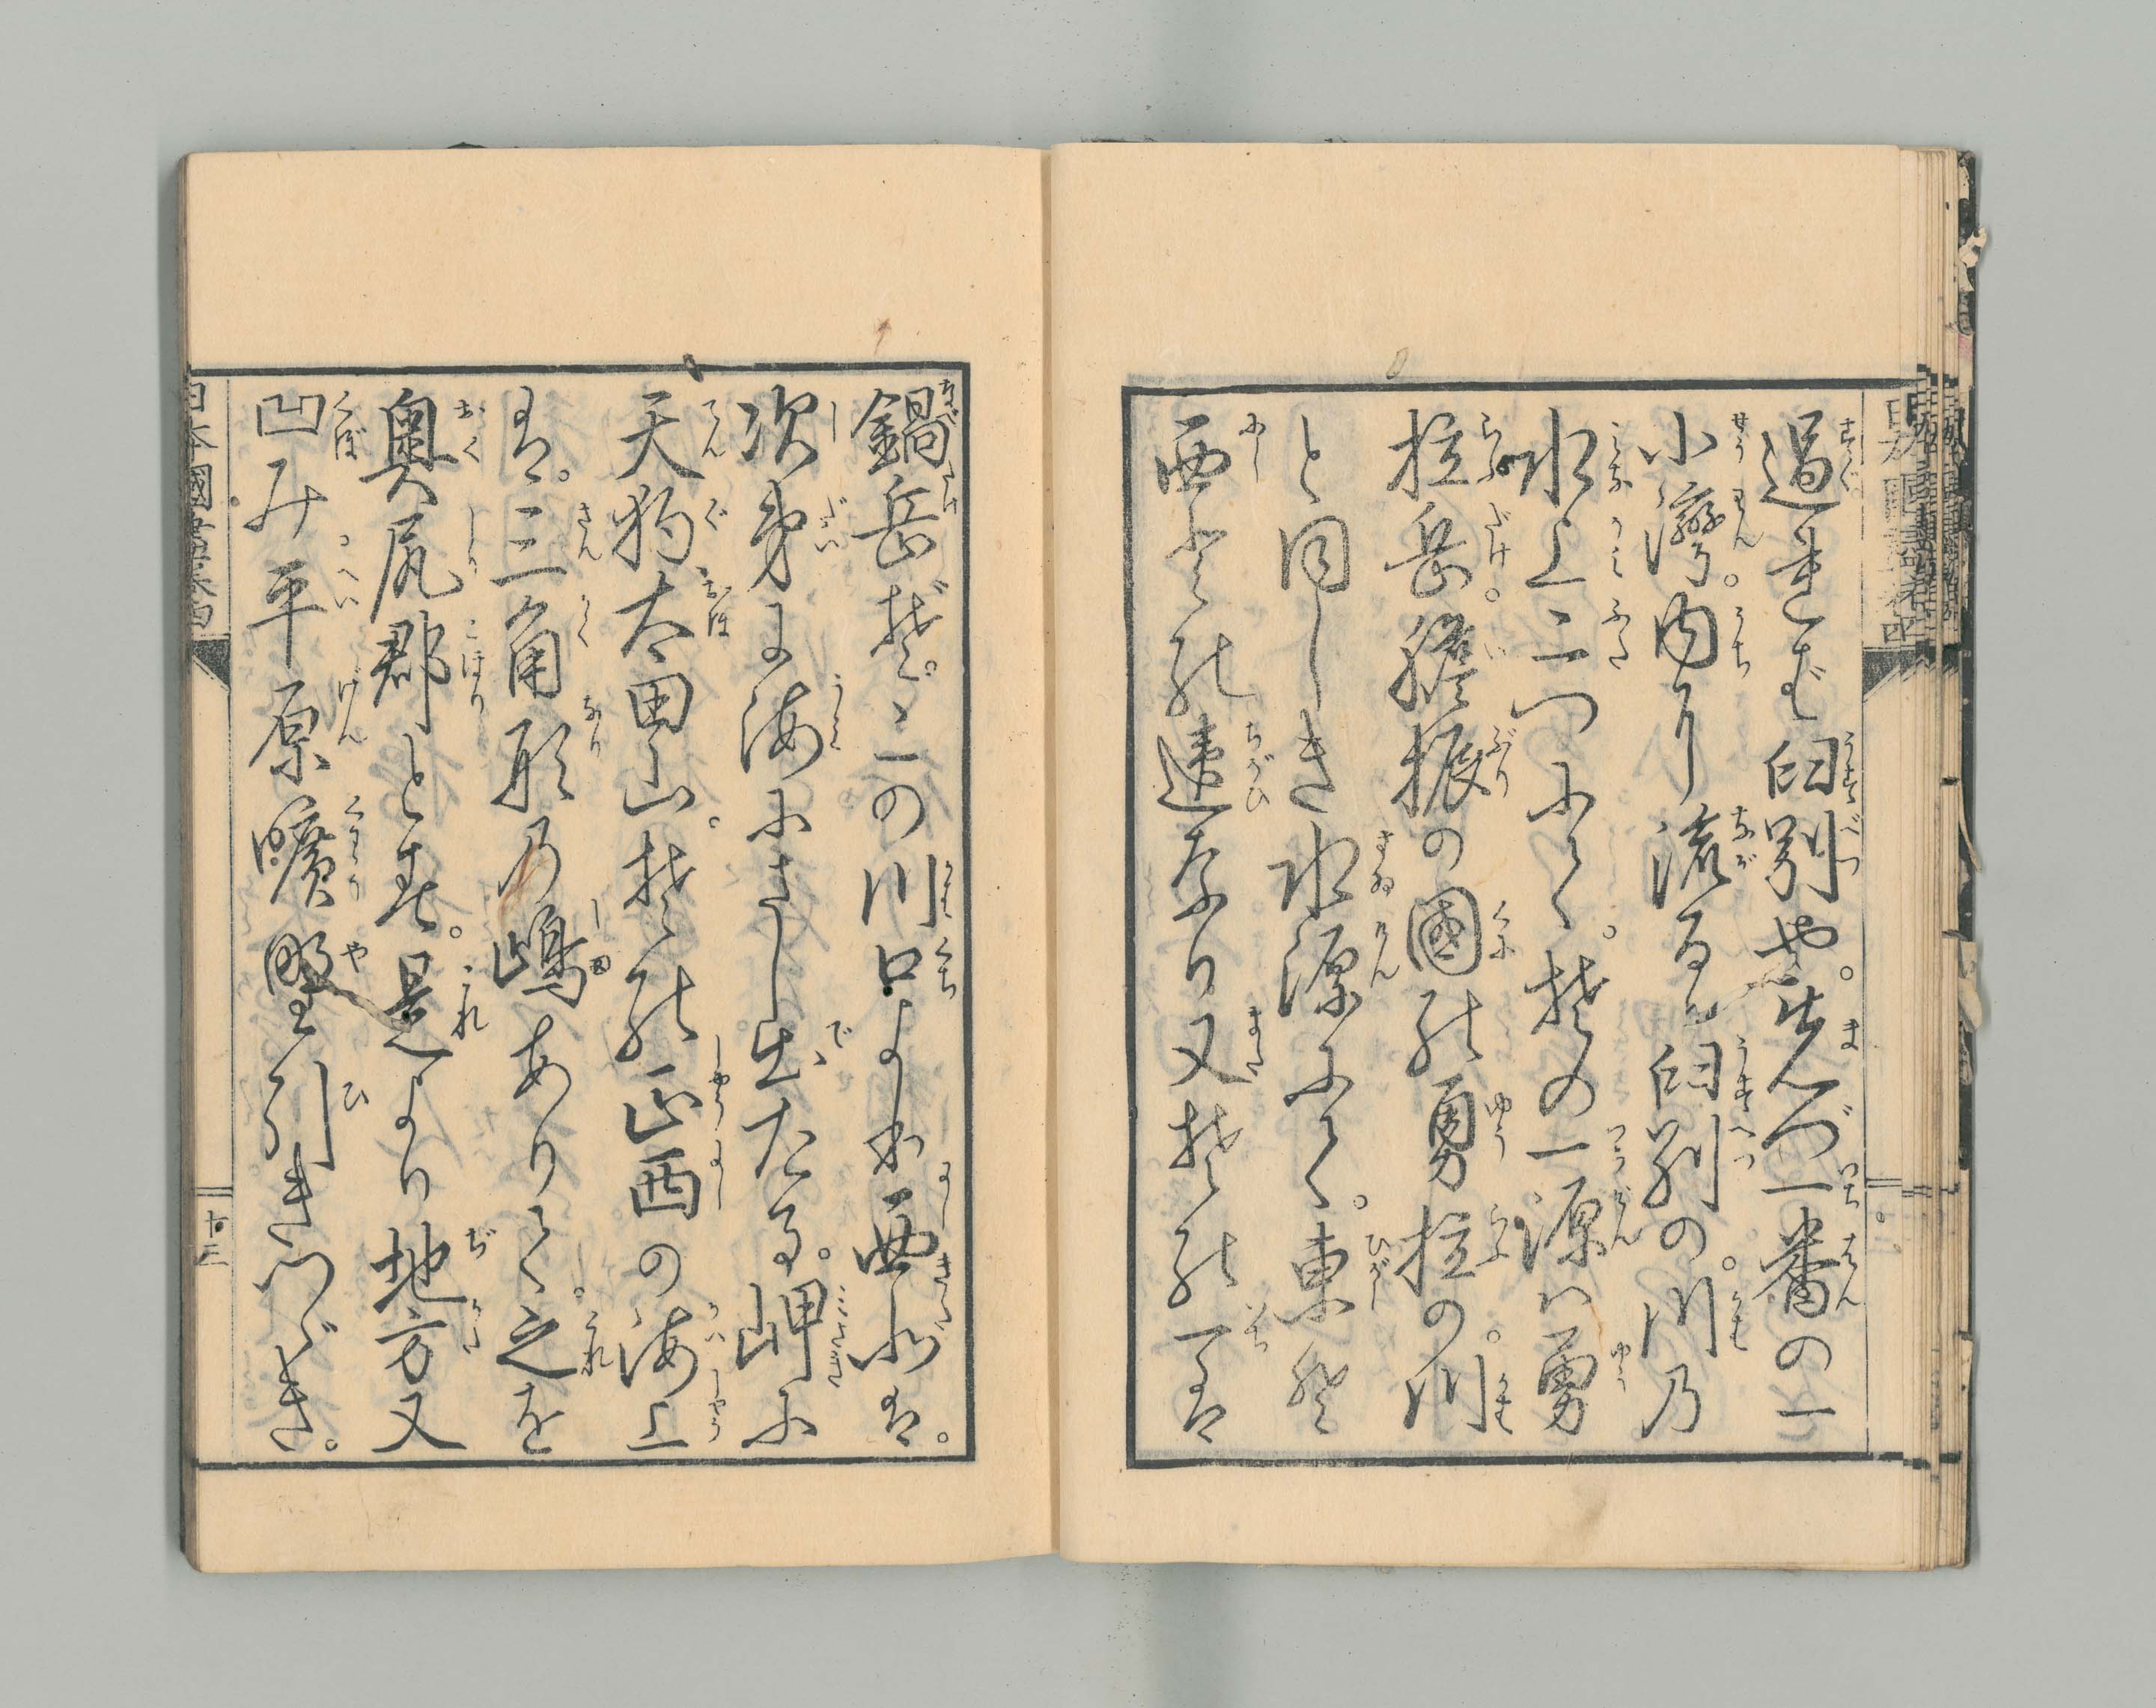 過れば臼別也。先づ一番の一
小灣。内り流る臼別の川。乃
水上二つにて。其の一源ハ勇
拉岳。膽振の國の勇拉の川。
と同じき水源にて。東と
西との違なり又其の一は
鍋岳ぞ。この川口より西北は。
次第に海にさし出たる。岬に
天狗太田山。其の正西の海上
は。三角形乃嶋ありて。之を
奥尻郡とす。是より地方又
凹み平原曠野引きつゞき。
日本國盡卷四
十三